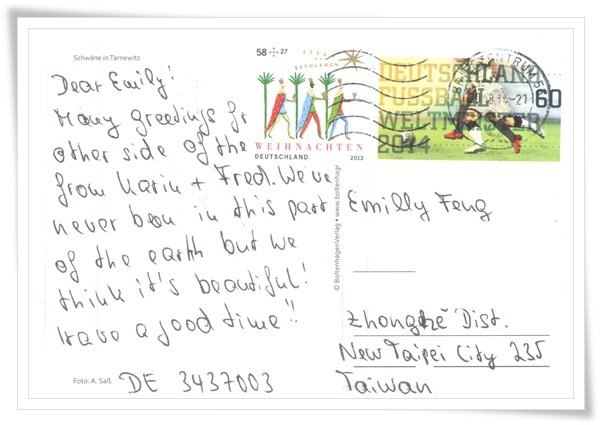 Schwäne in Tarnewitz
Dear Emily!
Many greetings fr
other side of the
from Karin + Fred. We've
never been in this part
of the earth but we
think it's beautiful!
Have a good time!!
Foto: A. Saß
DE 3437003
58 + 27
STERN
BETHLEHEM
WEIHNACHTEN
DEUTSCHLAND 2013
© BoltenhagenVerlag • www.boltenhag
DEUTSCHLAND
FUSSBALL
WELTMEISTER
2014
60
BRIEFZENTRUM
-21
Emilly Feng
Zhonghe Dist.
New Taipei City 235
Taiwan